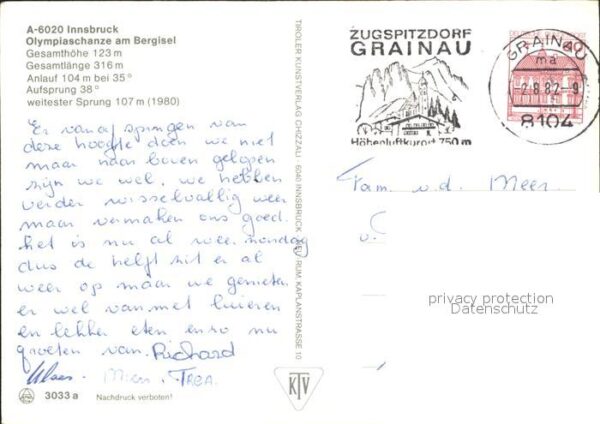 A-6020 Innsbruck
Olympiaschanze am Bergisel
Gesamthöhe 123 m
Gesamtlänge 316 m
Anlauf 104 m bei 35°
Aufsprung 38°
weitester Sprung 107 m (1980)
Er vanaf springen van
deze hoogte doen we niet
maar naar boven gelopen
zijn we wel. we hebben
verder wisselvallig weer
maar vermaken ons goed.
het is nu al weer zondag
dus de helft zit er al
weer op maar we genieten
er wel van met luieren
en lekker eten enzo nu
groeten van Richard
Klaas Mien Trea.
3033 a
Nachdruck verboten!
TIROLER KUNSTVERLAG CHIZZALI 6040 INNSBRUCK - NEU RUM, KAPLANSTRASSE 10
KTV
ZUGSPITZDORF
GRAINAU
Höhenluftkurort 750 m
GRAINAU
ma
-2.8.82-9
8104
Fam v.d. Meer
privacy protection
Datenschutz